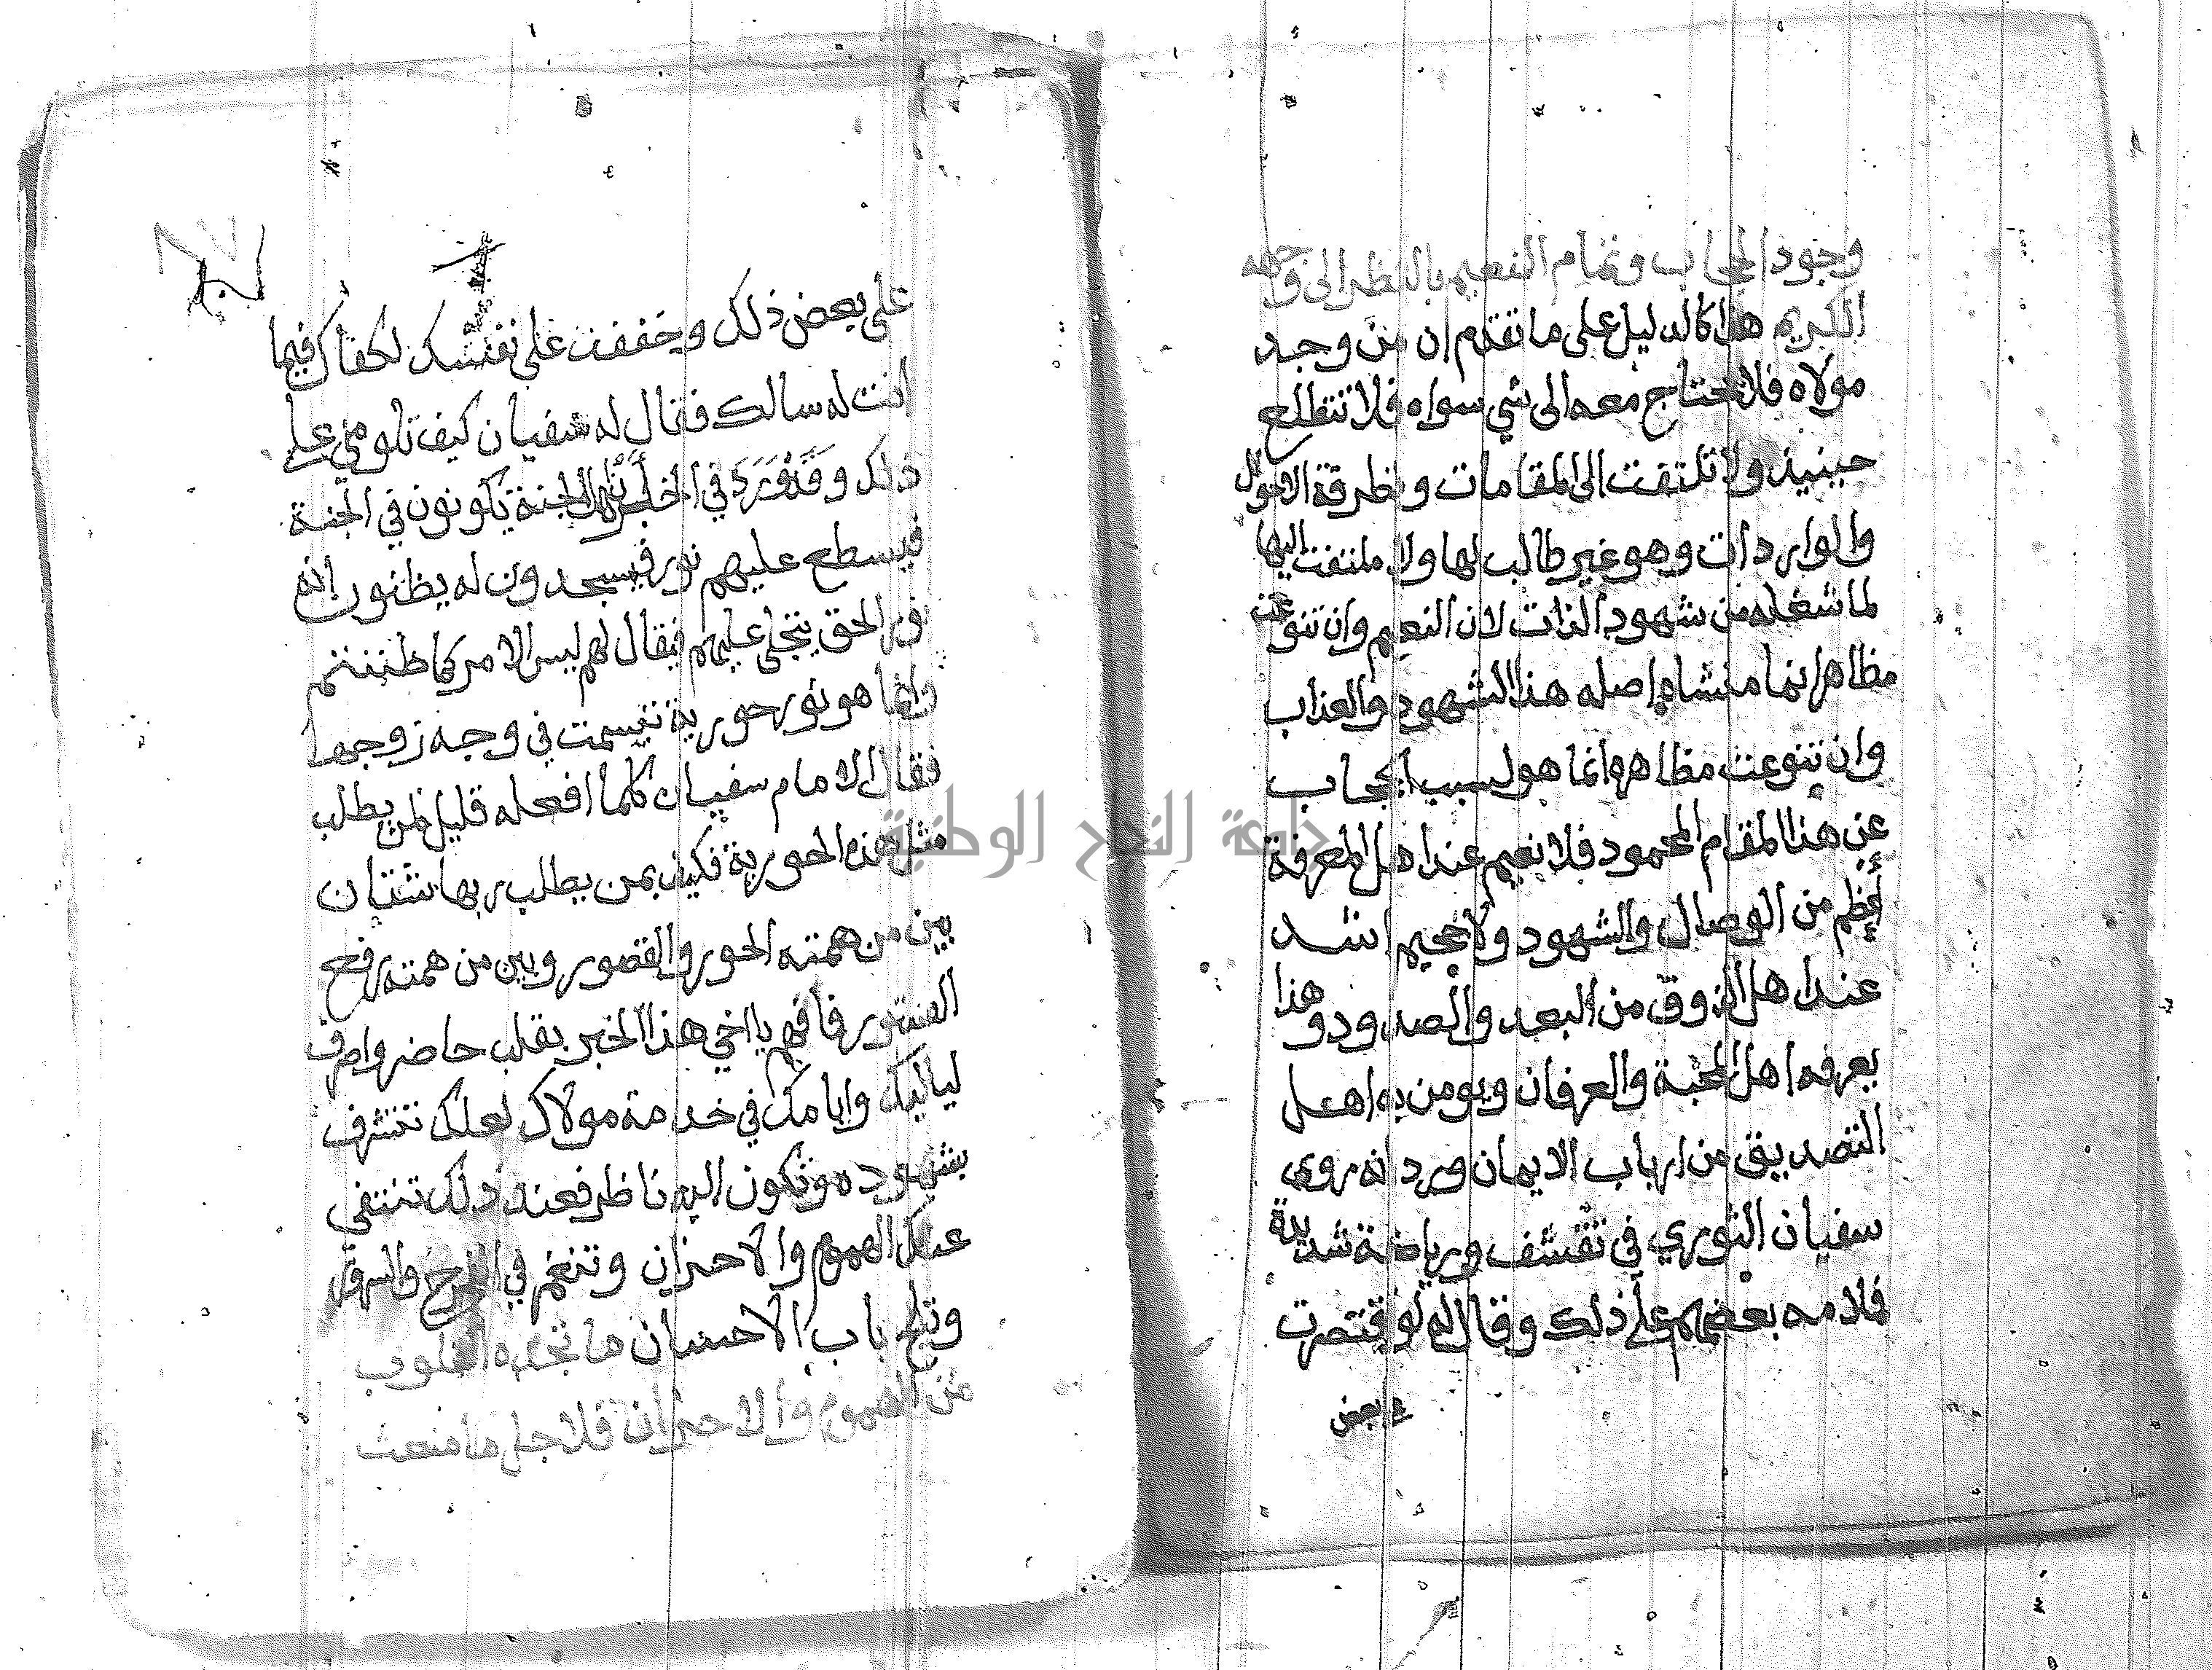 وجود الحجاب وتمام النعيم بالنظر الى وجهه
الكريم هذا كالدليل على ما تقدم ان من وجد
مولاه فلا يحتاج معه الى شي سواه فلا تتطلع
حينيذ ولا تلتفت الى المقامات وطرقة الاحوال
والواردات وهو غير طالب لها ولا ملتفت اليها
لما شغله من شهود الذات لان النعيم وان تنوعت
مظاهر انما منشاه اصله هذا الشهود والعذاب
وان تنوعت مظاهره انما هو لسبب الحجاب
عن هذا المقام المحمود فلا نعيم عند اهل المعرفة
أعظم من الوصال والشهود ولا جحيم اشد
عند اهل الذوق من البعد والصدود وهذا
يعرفه اهل المحبة والعرفان ويومن به اهل
التصديق من ارباب الايمان ورد انه روى
سفيان الثوري في تقشف ورياضة شديدة
فلامه بعضهم على ذلك وقال له لو اقتصرت
على بعض
على بعض ذلك وخففت على نفسك لكفاك فيما
انت له سالك فقال له سفيان كيف تلومني على
ذلك وقد ورد في الخبر أن أهل الجنة يكونون في الجنة
فيسطع عليهم نور فيسجدون له يظنون انه
نور الحق يتجلى عليهم فيقال لهم ليس الامر كما ظننتم
وانما هو نور حورية تبسمت في وجه زوجها
فقال الامام سفيان كلما افعله قليل لمن يطلب
مثل هذه الحورية فكيف بمن يطلب ربها شتان
بين من همته الحور والقصور وبين من همته رفع
الستور فافهم يا اخي هذا الخبر بقلب حاضر واصرف
لياليك وايامك في خدمة مولاك لعلك تتشرف
بشهوده وتكون اليه ناظر فعند ذلك تنتفي
عنك الهموم والاحزان وتنغم في الفرح والسرور
وتلج باب الاحسان ما تجده القلوب
من الهموم والاحزان فلاجل ما منعت
جامعة النجاح الوطنية